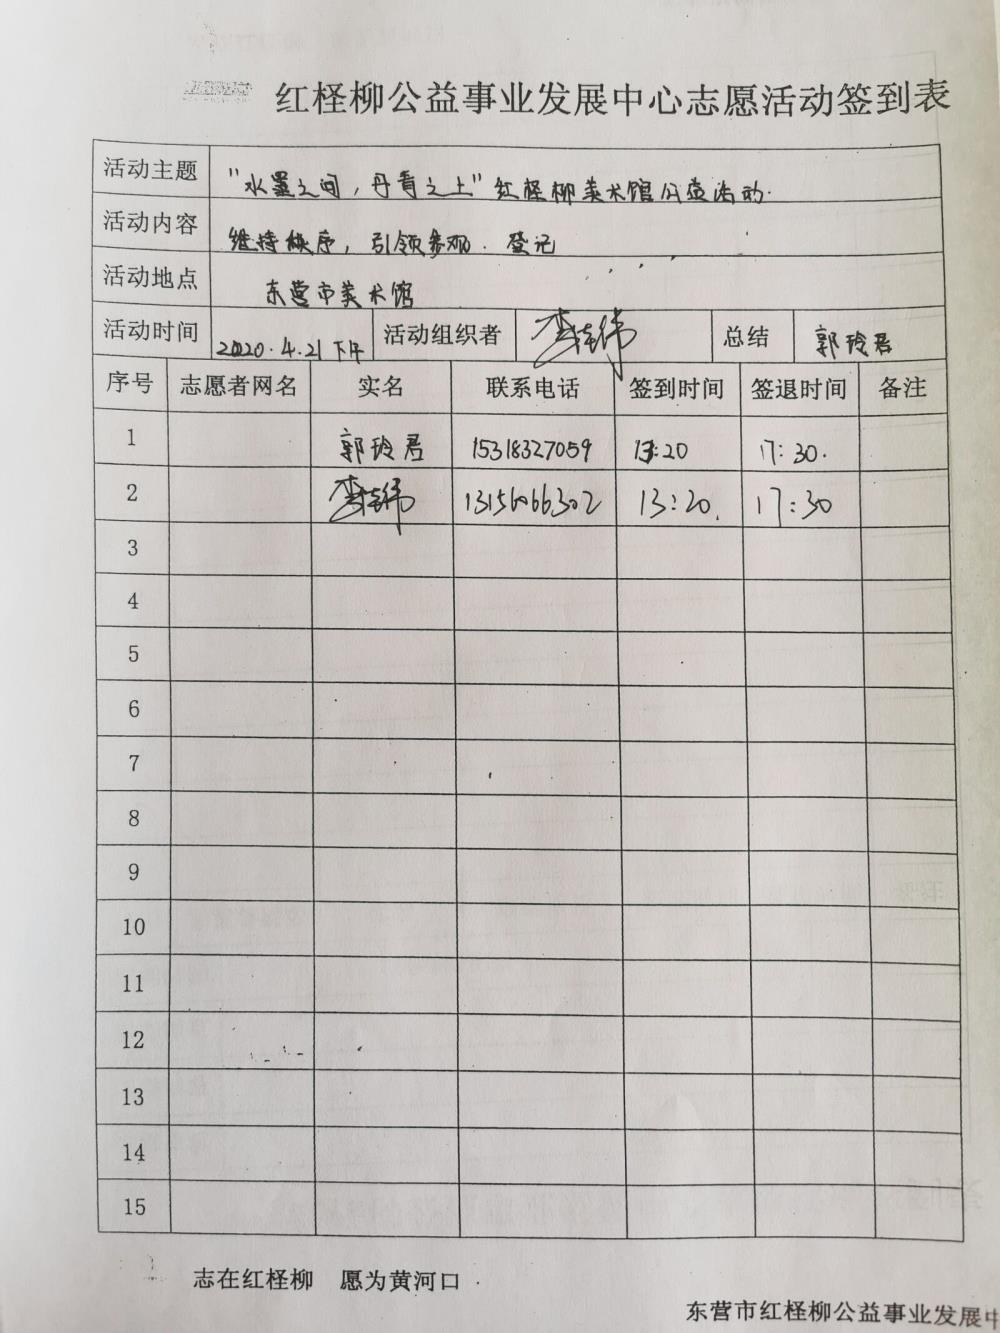 红柽柳公益事业发展中心志愿活动签到表
活动主题 "水墨之间，丹青之上"红柽柳美术馆公益活动.
活动内容 维持秩序，引领参观．登记
活动地点 东营市美术馆
活动时间 2020.4.21下午 活动组织者 总结 郭玲君
序号 志愿者网名 实名 联系电话 签到时间 签退时间 备注
1 郭玲君 15318327059 13:20 17:30.
2 13:20. 17:30
3
4
5
6
7
8
9
10
11
12
13
14
15
志在红柽柳 愿为黄河口
东营市红柽柳公益事业发展中